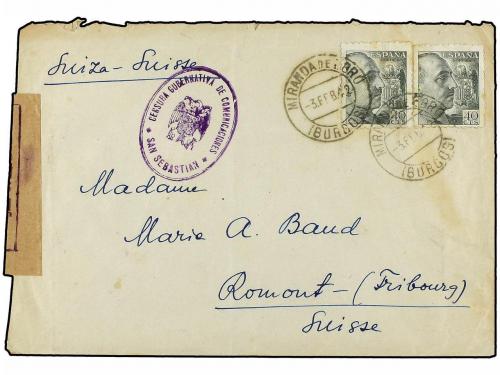 Suiza-Suisse
CENSURA GUBERNATIVA DE COMUNICACIONES
SAN SEBASTIAN
MIRANDA DE EBRO
-3.FEB.42
(BURGOS)
ESPAÑA
40
ESPAÑA
40
MIRANDA DE EBRO
-3.FEB.42
(BURGOS)
Madame
Marie A. Baud
Romont-(Fribourg)
Suisse